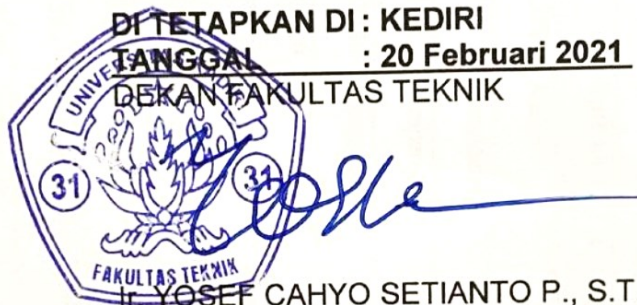 DI TETAPKAN DI : KEDIRI
TANGGAL : 20 Februari 2021
DEKAN FAKULTAS TEKNIK
31 31
FAKULTAS TEKNIK
Ir. YOSEF CAHYO SETIANTO P., S.T